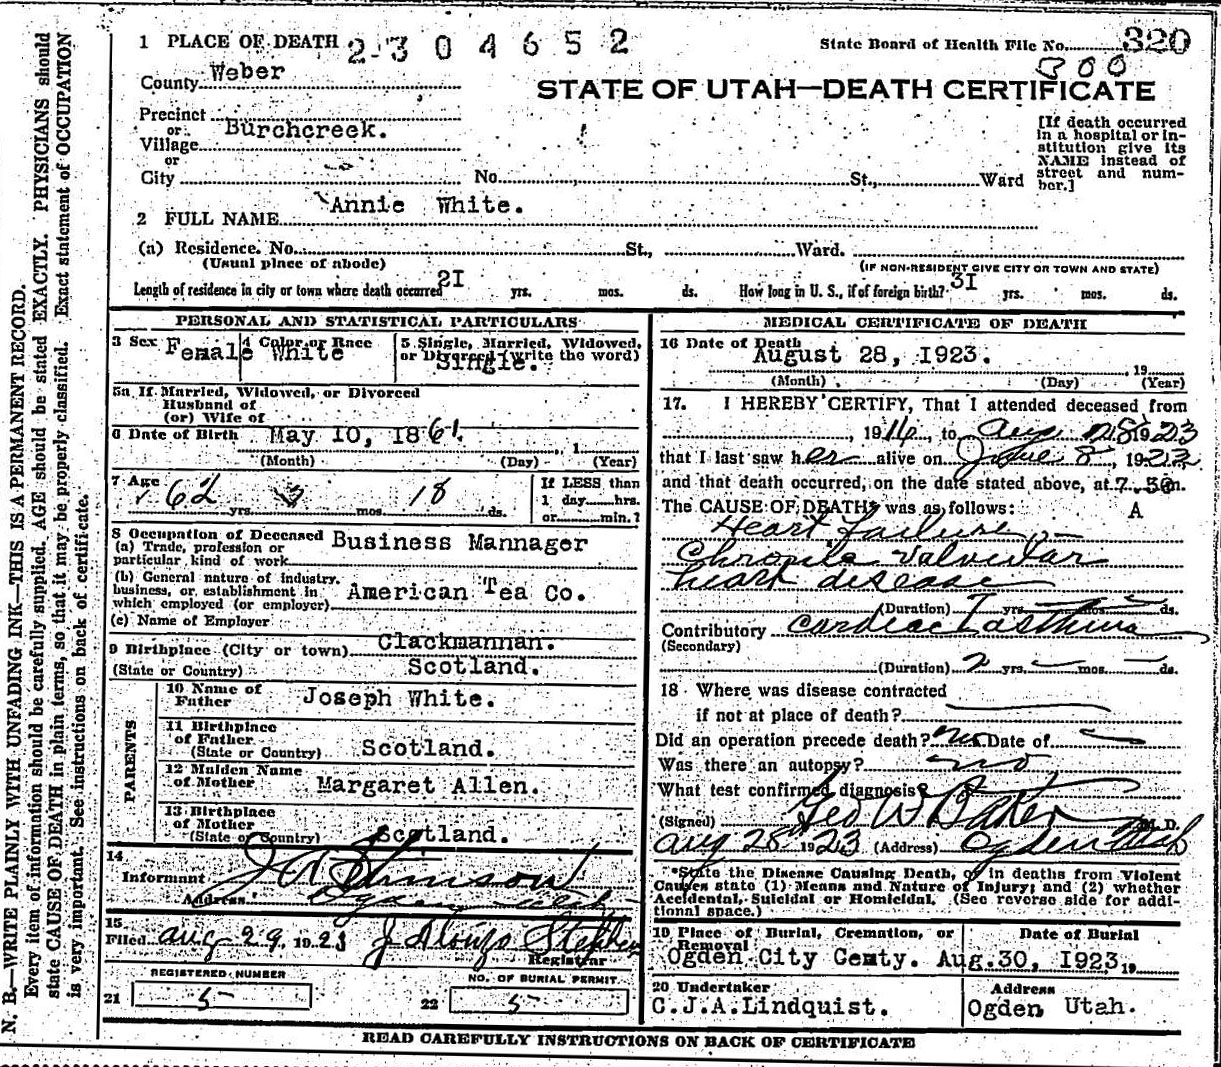 N. B.—WRITE PLAINLY WITH UNFADING INK—THIS IS A PERMANENT RECORD.
Every item of information should be carefully supplied. AGE should be stated EXACTLY. PHYSICIANS should
state CAUSE OF DEATH in plain terms, so that it may be properly classified. Exact statement of OCCUPATION
is very important. See instructions on back of certificate.
1 PLACE OF DEATH 2-304652
State Board of Health File No. 320
300
County Weber
STATE OF UTAH—DEATH CERTIFICATE
Precinct
or Burchcreek.
Village
or
City No. St., Ward
[If death occurred
in a hospital or in-
stitution give its
NAME instead of
street and num-
ber.]
2 FULL NAME Annie White.
(a) Residence. No. St., Ward.
(Usual place of abode) (IF NON-RESIDENT GIVE CITY OR TOWN AND STATE)
Length of residence in city or town where death occurred 2I yrs. mos. ds. How long in U. S., if of foreign birth? 3I yrs. mos. ds.
PERSONAL AND STATISTICAL PARTICULARS
3 Sex Female 4 Color or Race White 5 Single, Married, Widowed,
or Divorced (write the word) Single.
5a If Married, Widowed, or Divorced
Husband of
(or) Wife of
6 Date of Birth May 10, 1861. 1
(Month) (Day) (Year)
7 Age 62 yrs. 3 mos. 18 ds.
If LESS than
1 day hrs.
or min.?
8 Occupation of Deceased Business Mannager
(a) Trade, profession or
particular kind of work
(b) General nature of industry,
business, or establishment in American Tea Co.
which employed (or employer)
(c) Name of Employer
9 Birthplace (City or town) Clackmannan.
(State or Country) Scotland.
PARENTS
10 Name of
Father Joseph White.
11 Birthplace
of Father
(State or Country) Scotland.
12 Maiden Name
of Mother Margaret Allen.
13 Birthplace
of Mother
(State or Country) Scotland.
14
Informant
Address Ogden Utah
15
Filed Aug 29, 1923 J Alonzo Stephens
Registrar
REGISTERED NUMBER NO. OF BURIAL PERMIT
21 5 22 5
MEDICAL CERTIFICATE OF DEATH
16 Date of Death
August 28, I923. 19
(Month) (Day) (Year)
17. I HEREBY CERTIFY, That I attended deceased from
, 1916, to Aug 28 1923
that I last saw her alive on June 8, 1923,
and that death occurred, on the date stated above, at 7.30 m.
The CAUSE OF DEATH* was as follows: A
Heart failure,—
Chronic valvular
heart disease
(Duration) 7 yrs. mos. ds.
Contributory Cardiac asthma
(Secondary)
(Duration) 2 yrs. mos. ds.
18 Where was disease contracted
if not at place of death?
Did an operation precede death? no Date of
Was there an autopsy? no
What test confirmed diagnosis?
(Signed) Geo W Baker M. D.
Aug 28 1923 (Address) Ogden Utah
*State the Disease Causing Death, or in deaths from Violent
Causes state (1) Means and Nature of Injury; and (2) whether
Accidental, Suicidal or Homicidal. (See reverse side for addi-
tional space.)
19 Place of Burial, Cremation, or
Removal Date of Burial
Ogden City Cemty. Aug.30, I923 19
20 Undertaker Address
C.J.A.Lindquist. Ogden Utah.
READ CAREFULLY INSTRUCTIONS ON BACK OF CERTIFICATE